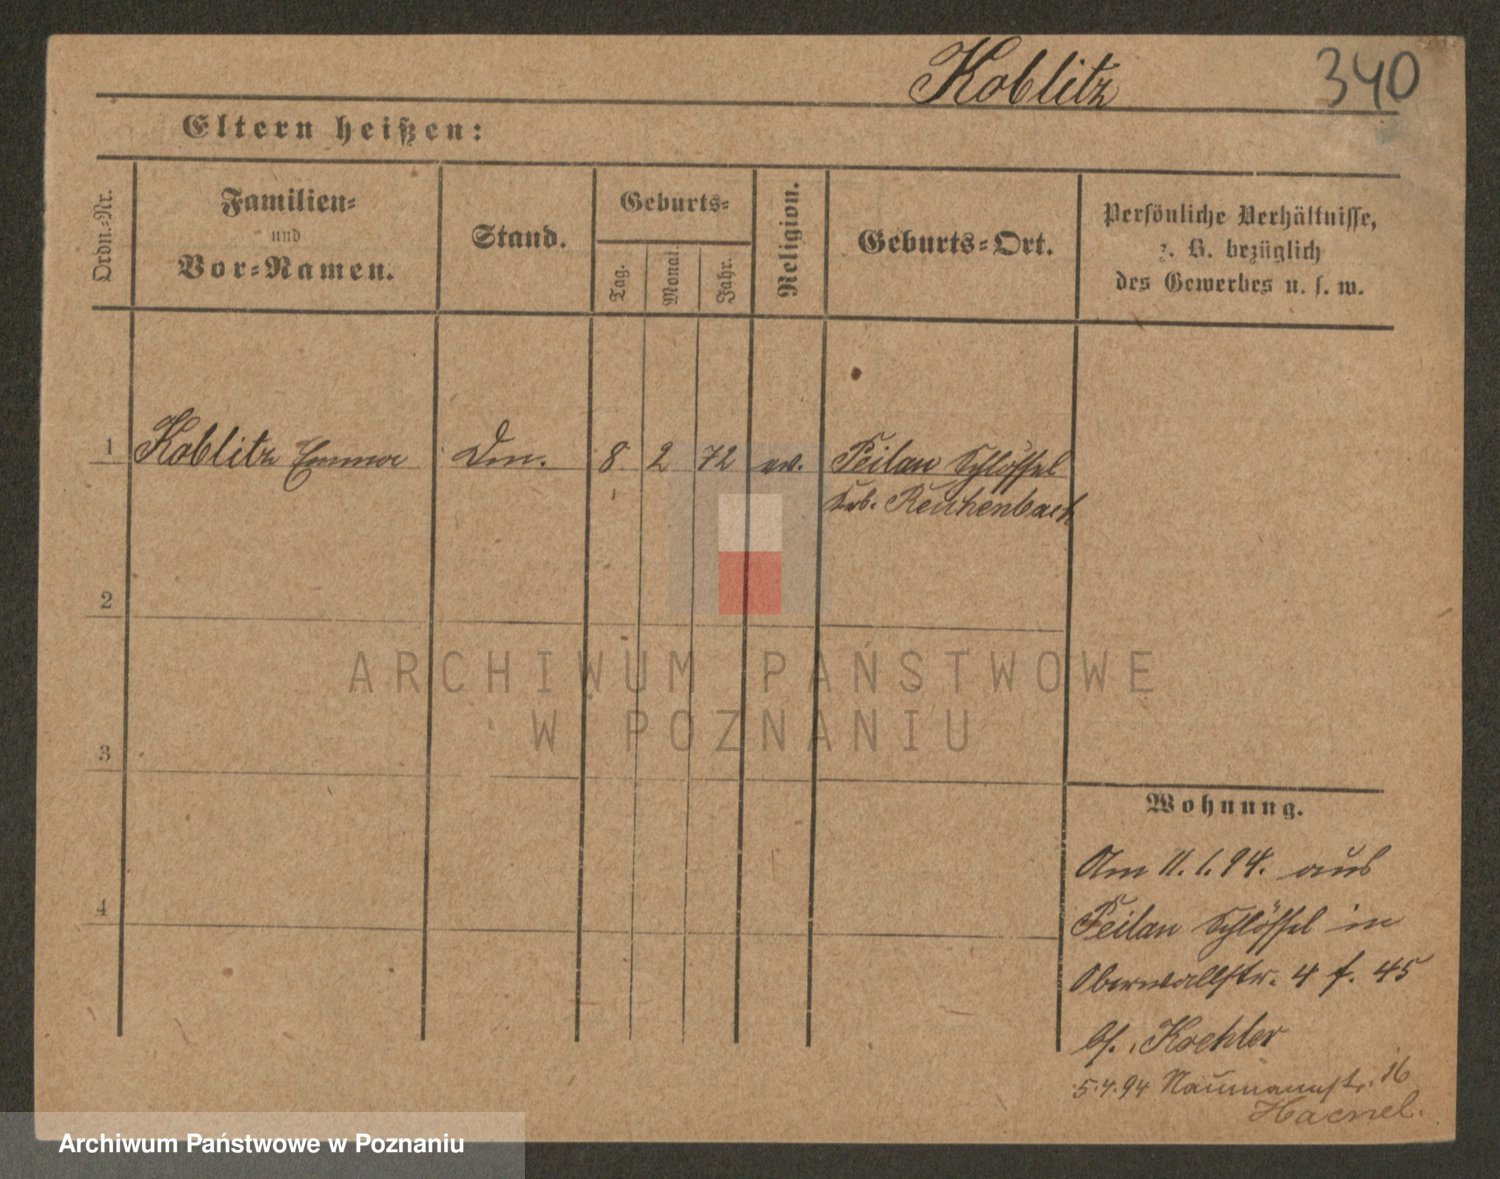 Koblitz 340
Eltern heißen:
Ordn.-Nr.
Familien-
und
Vor-Namen.
Stand.
Geburts-
Tag.
Monat
Jahr.
Religion.
Geburts-Ort.
Persönliche Verhältnisse,
z. B. bezüglich
des Gewerbes u. s. w.
1 Koblitz Emma 8 2 72 ev. Peilau Schlössel
Reichenbach
2
3
4
Wohnung.
Am 11.1.94. aus
Peilau Schlössel in
Oberwallstr. 4 f. 45
bei Koehler
5.4.94 Naumannstr. 16
Haenel.
ARCHIWUM PAŃSTWOWE
W POZNANIU
Archiwum Państwowe w Poznaniu